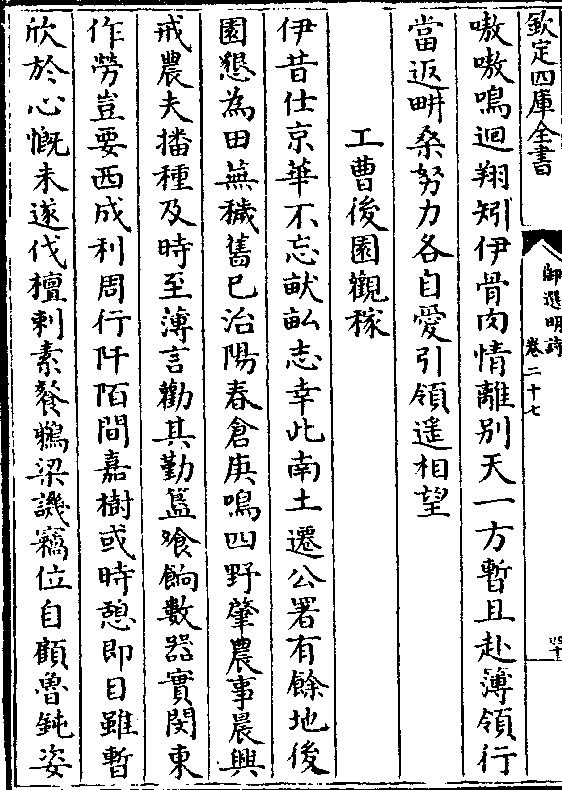 欽定四庫全書
御選明詩
卷二十七
四十
嗷嗷鳴迴翔矧伊骨肉情離别天一方暫且赴簿領行
當返畊桑努力各自愛引領遥相望
工曹後園觀稼
伊昔仕京華不忘畎畝志幸此南土遷公署有餘地後
園懇為田蕪穢舊已治陽春倉庚鳴四野肇農事晨興
戒農夫播種及時至薄言勸其勤簋飱餉數器實閔東
作勞豈要西成利周行阡陌間嘉樹或時憩即目雖暫
欣於心慨未遂伐檀刺素餐鵜梁譏竊位自顧魯鈍姿